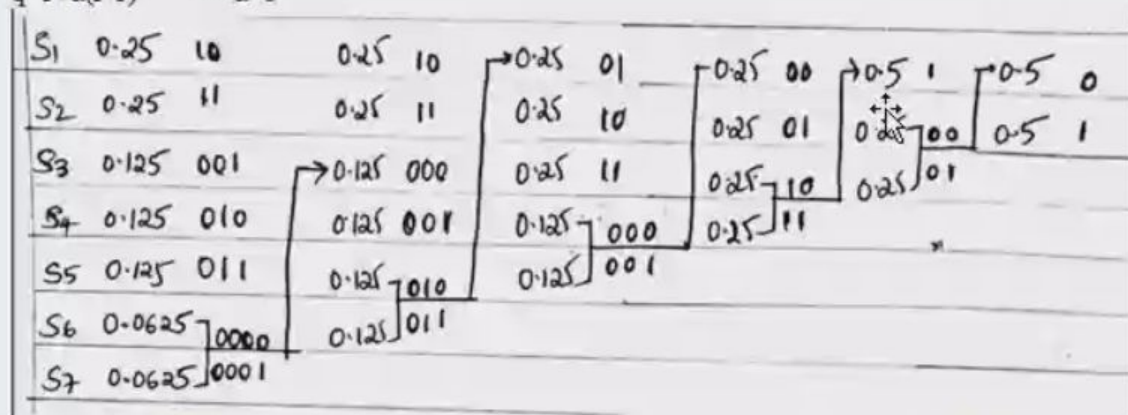 S1 0.25 10 0.25 10 0.25 01 0.25 00 0.5 1 0.5 0
S2 0.25 11 0.25 11 0.25 10 0.25 01 0.25 00 0.5 1
S3 0.125 001 0.125 000 0.25 11 0.25 10 0.25 01
S4 0.125 010 0.125 001 0.125 000 0.25 11
S5 0.125 011 0.125 010 0.125 001
S6 0.0625 0000 0.125 011
S7 0.0625 0001